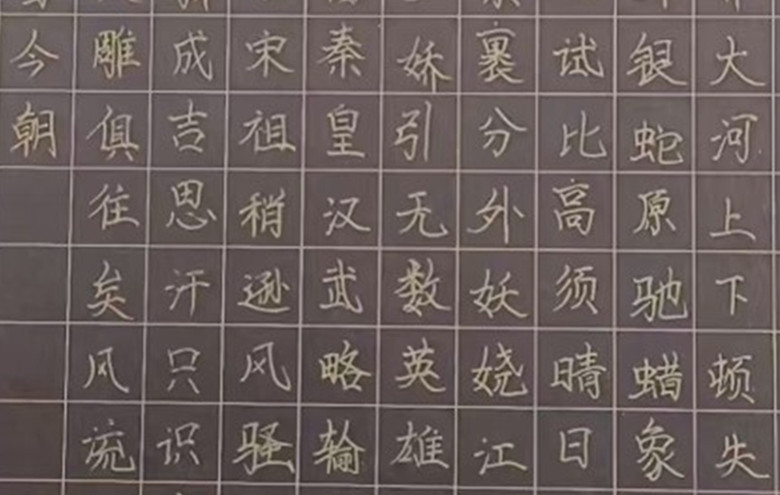 大河上下顿失
银蛇原驰蜡象
试比高须晴日
裹分外妖娆江
娇引无数英雄
秦皇汉武略输
宋祖稍逊风骚
成吉思汗只识
雕俱往矣风流
今朝